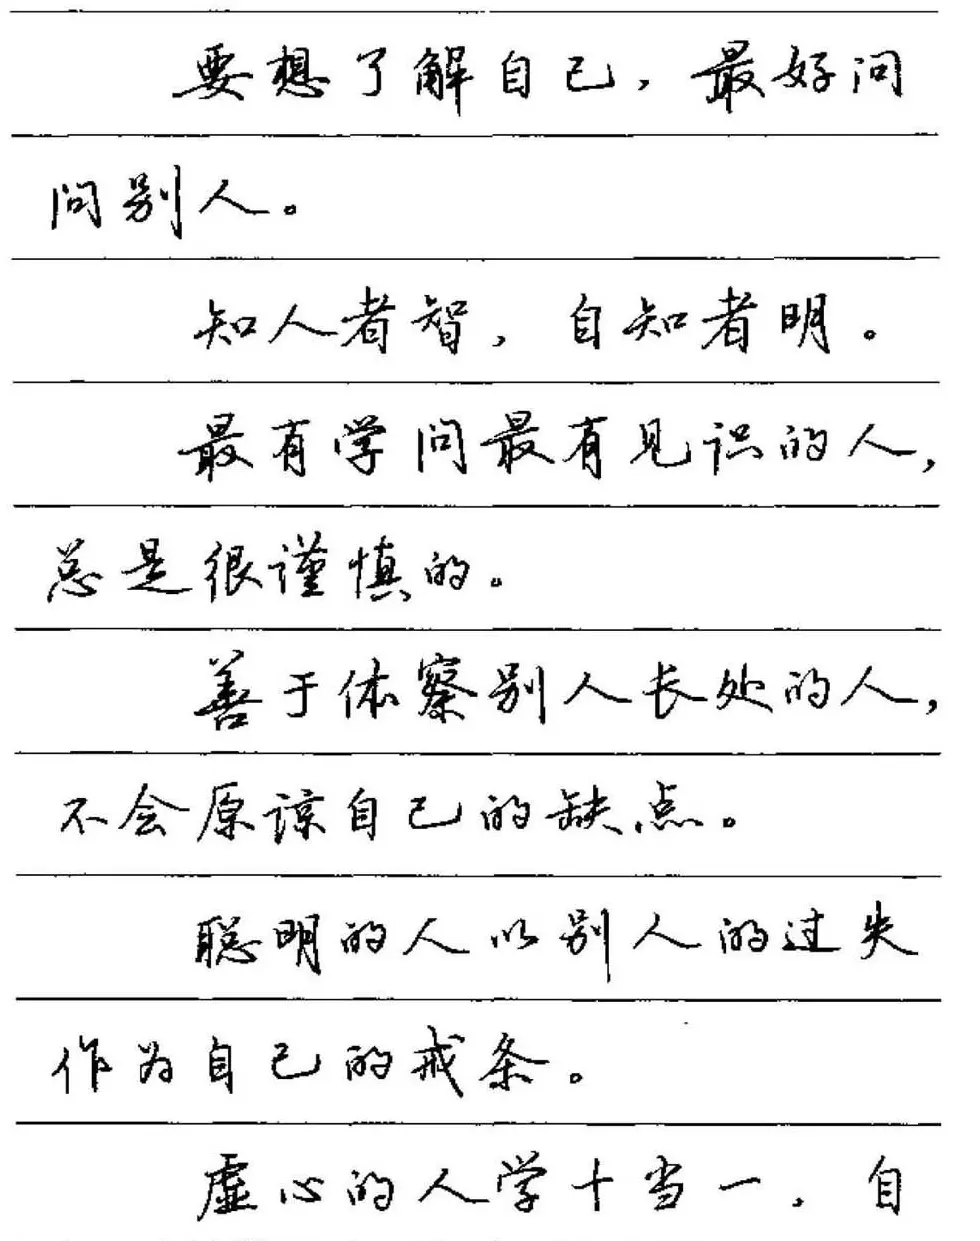 要想了解自己，最好问
问别人。
知人者智，自知者明。
最有学问最有见识的人，
总是很谨慎的。
善于体察别人长处的人，
不会原谅自己的缺点。
聪明的人以别人的过失
作为自己的戒条。
虚心的人学十当一，自